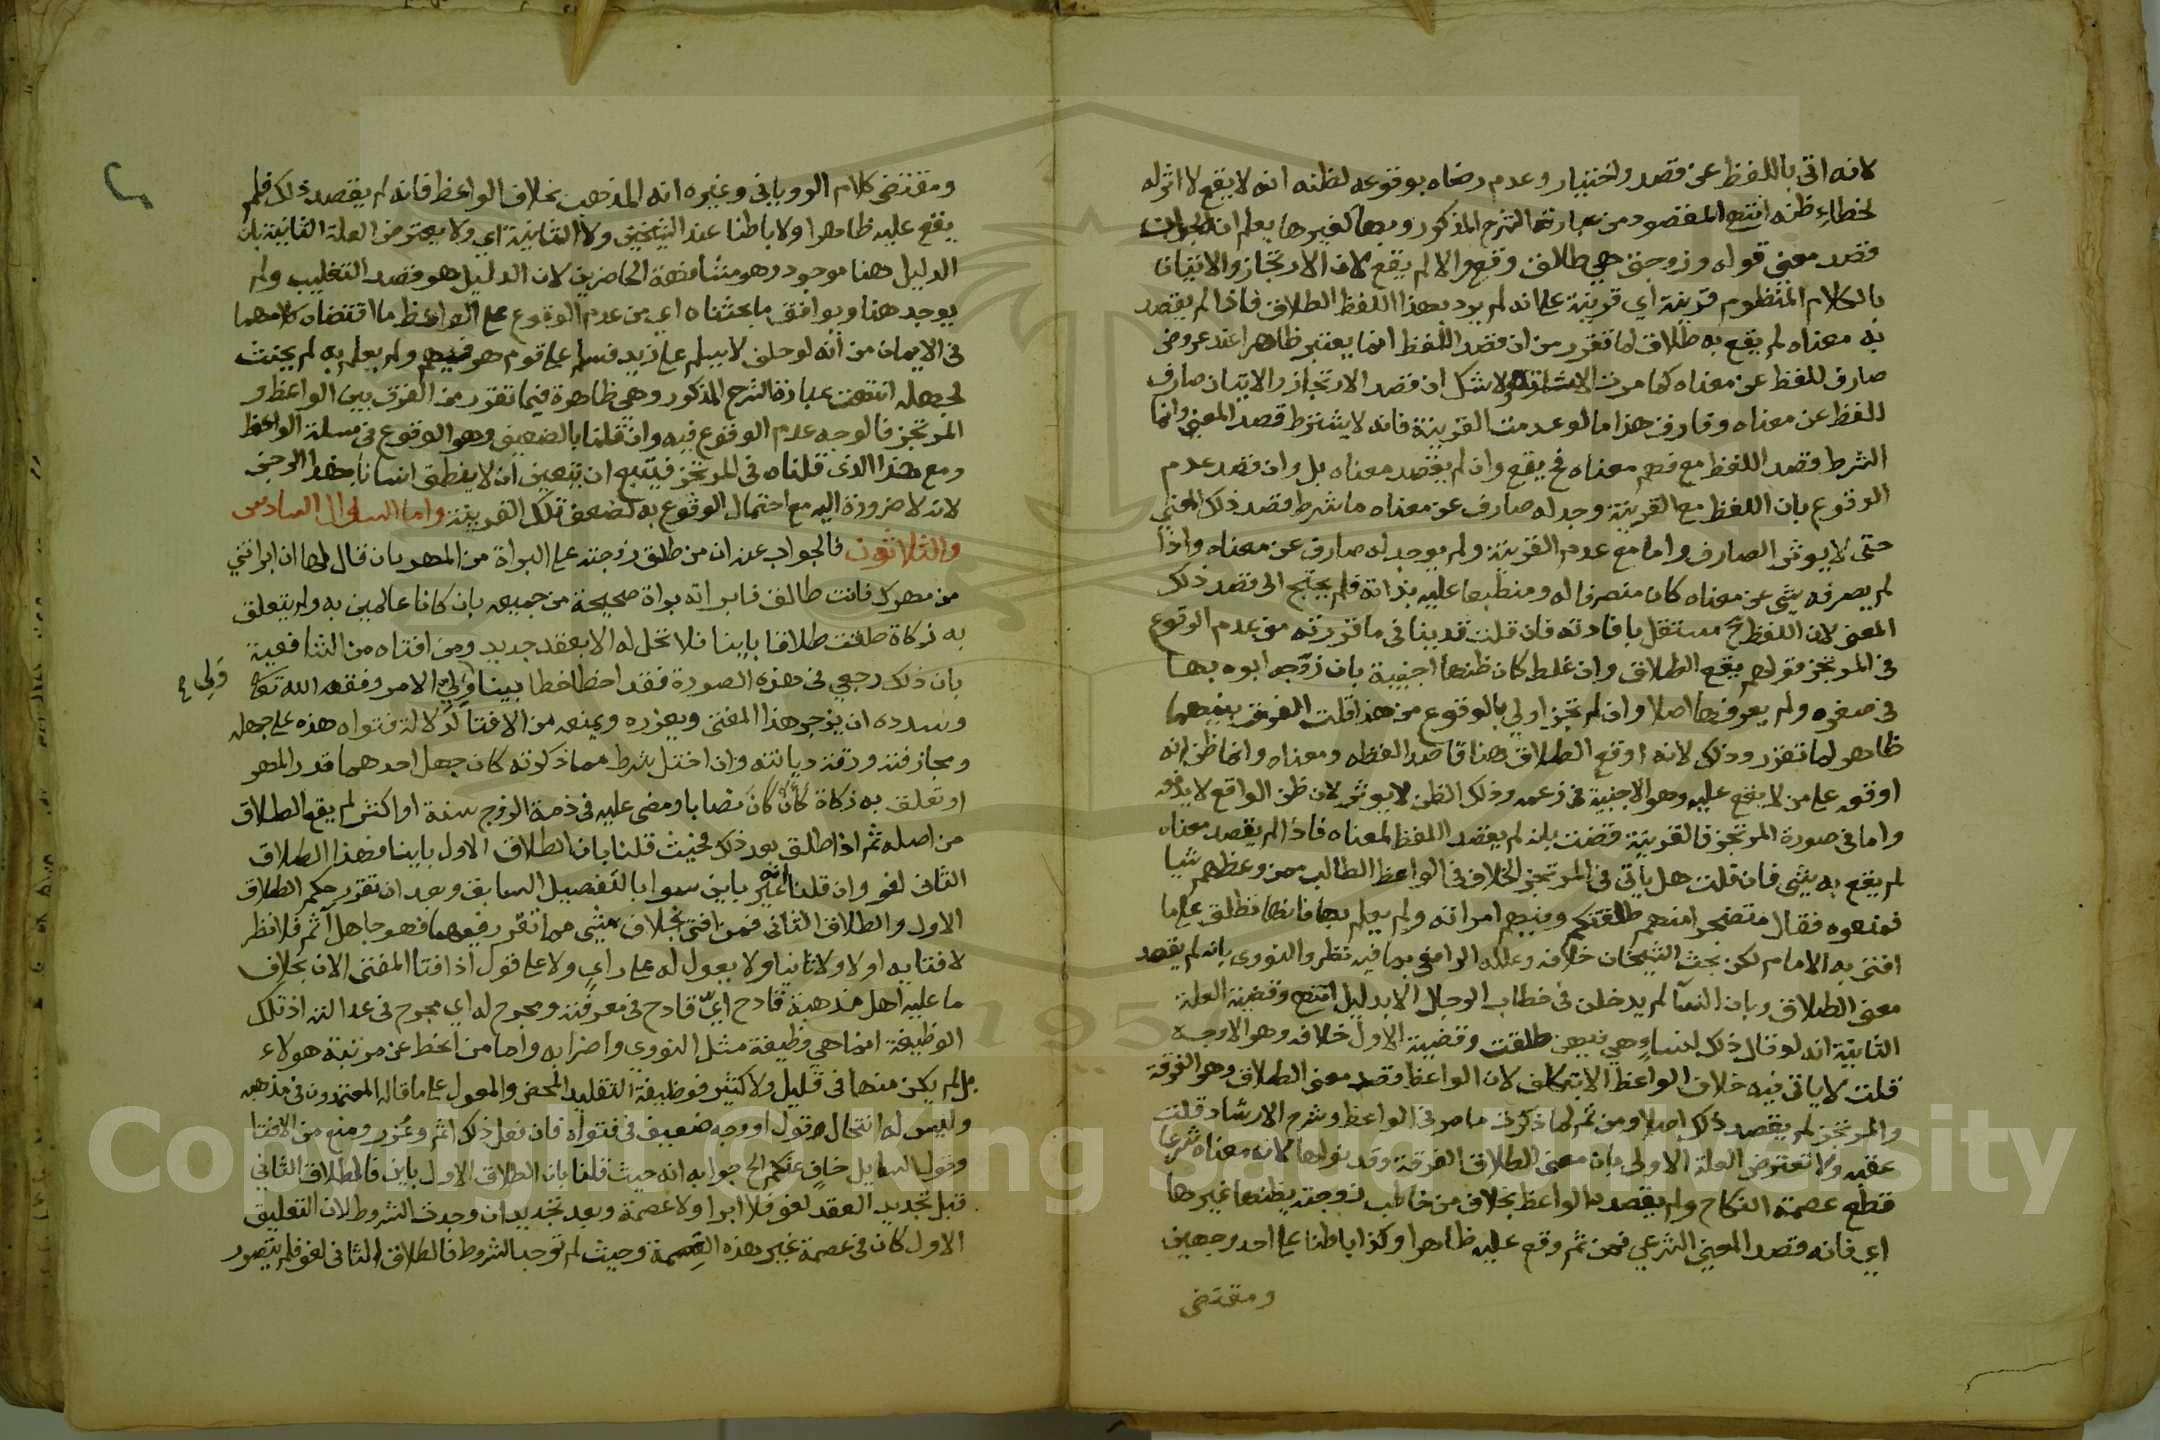 لانه اتى باللفظ عن قصد واختيار وعدم رضاه بوقوعه لظنه انه لا يقع لا اثر له
لخطاء ظنه انتهى المقصود من عبارة الشرح المذكور وبها كغيرها يعلم ان
قصد معنى قوله وزوجتي هي طالق وقع والا لم يقع لان الارتجاز والاتيان
بالكلام المنظوم قرينة اي قرينة على انه لم يرد بهذا اللفظ الطلاق فاذا لم يقصد
به معناه لم يقع به طلاق لما تقرر من ان قصد اللفظ انما يعتبر ظاهرا عند عروض
صارف للفظ عن معناه كما مرت الاشارة ولا شك ان قصد الارتجاز والاتيان صارف
للفظ عن معناه وفارق هذا ما لو عدمت القرينة فانه لا يشترط قصد المعنى وانما
الشرط قصد اللفظ مع فهم معناه فح يقع وان لم يقصد معناه بل وان قصد عدم
الوقوع بان اللفظ مع القرينة وجد له صارف عن معناه ما شرط قصد ذلك المعنى
حتى لا يوثر الصارف واما مع عدم القرينة ولم يوجد له صارف عن معناه واذا
لم يصرفه شي عن معناه كان منصرفا له ومنطبعا عليه بذاته فلم يحتج الى قصد ذلك
المعنى لان اللفظ ح مستقل بافادته فان قلت قد ينافي ما قررته من عدم الوقوع
في المرتجز قولهم يقع الطلاق وان غلط كان ظنها اجنبية بان زوجه ابوه بها
في صغره ولم يعرفها اصلا وان لم تجز اولى بالوقوع من هذا قلت الفرق بينهما
ظاهر لما تقرر وذلك لانه اوقع الطلاق هنا قاصدا لفظه ومعناه وانما ظن انه
اوقعه على من لا يقع عليه وهو الاجنبية في زعمه وذلك الظن لا يوثر لان ظن الواقع لا يدفعه
واما في صورة المرتجز فالقرينة قضت بانه لم يقصد اللفظ لمعناه فاذا لم يقصد معناه
لم يقع به شي فان قلت هل ياتي في المرتجز الخلاف في الواعظ الطالب ممن وعظهم شيا
فمنعوه فقال متضجرا منهم طلقتكم وفيهم امراته ولم يعلم بها فانها تطلق على ما
افتى به الامام لكن بحث الشيخان خلافه وعلله الرافعي بما فيه نظر والنووي بانه لم يقصد
معنى الطلاق وبان النسا لم يدخلن في خطاب الرجال الا بدليل انتهى وقضية العلة
الثانية انه لو قال ذلك لنساء وهي فيهن طلقت وقضية الاول خلافه وهو الاوجه
قلت لا ياتي فيه خلاف الواعظ الا بتكلف لان الواعظ قصد معنى الطلاق وهو الفرقة
والمرتجز لم يقصد ذلك اصلا ومن ثم لما ذكرت ما مر في الواعظ وشرح الارشاد قلت
عقبه ولا تعترض العلة الاولى بان معنى الطلاق الفرقة وقد نواها لان معناه شرعا
قطع عصمة النكاح ولم يقصد به الواعظ بخلاف من خاطب زوجته يظنها غيرها
اي فانه قصد المعنى الشرعي فمن ثم وقع عليه ظاهرا وكذا باطنا على احد وجهين
ومقتضى
ومقتضى كلام الروياني وغيره انه المذهب بخلاف الواعظ فانه لم يقصد ذلك فلم
يقع عليه ظاهرا ولا باطنا عند الشيخين ولا الثانية اي ولا يعترض العلة الثانية بان
الدليل هنا موجود وهو مشافهة الحاضرين لان الدليل هو قصد التغليب ولم
يوجد هنا ويوافق ما بحثناه اي من عدم الوقوع على الواعظ ما اقتضاه كلامهما
في الايمان من انه لو حلف لا يسلم على زيد فسلم على قوم هو فيهم ولم يعلم به لم يحنث
لجهله انتهت عبارة الشرح المذكور وهي ظاهرة فيما تقرر من الفرق بين الواعظ و
المرتجز فالوجه عدم الوقوع فيه وان قلنا بالضعيف وهو الوقوع في مسلة الواعظ
ومع هذا الذي قلناه في المرتجز فينبغي ان يتعين ان لا ينطق انسانا بهذا الرجز
لانه لا ضرورة اليه مع احتمال الوقوع به لضعف تلك القرينة واما السؤال السادس
والثلاثون فالجواب عنه ان من طلق زوجته على البراة من المهر بان قال لها ان ابراتني
من مهرك فانت طالق فابراته براة صحيحة من جميعه بان كانا عالمين به ولم يتعلق
به زكاة طلقت طلاقا باينا فلا تحل له الا بعقد جديد ومن افتاه من الشافعية
بان ذلك رجعي في هذه الصورة فقد اخطا خطا بينا ولي الامر وفقه الله تعالى
ولي ع
وسدده ان يزجر هذا المفتي ويعزره ويمنعه من الافتا لدلالة فتواه هذه على جهله
ومجازفته ورقة ديانته وان اختل شرط مما ذكرته كان جهل احدهما قدر المهر
او تعلق به زكاة كان كان نصابا ومضى عليه في ذمة الزوج سنة او اكثر لم يقع الطلاق
من اصله ثم اذا طلق بعد ذلك فحيث قلنا بان الطلاق الاول باينا فهذا الطلاق
الثاني لغو وان قلنا انه غير باين سوا بالتفصيل السابق وبعد ان تقرر حكم الطلاق
الاول والطلاق الثاني فمن افتى بخلاف شيى مما تقرر فيهما فهو جاهل آثم فلا نظر
لافتايه اولا ولا ثانيا ولا يعول له على راي ولا على قول اذ افتا المفتي الان بخلاف
ما عليه اهل مذهبه قادح اي قادح في معرفته ومجرح له اي مجرح في عدالته اذ تلك
الوظيفة انما هي وظيفة مثل النووي واضرابه واما من انحط عن مرتبة هولاء
بل لم يكن منها في قليل ولا كثير فوظيفة التقليد المحض والمعول على ما قاله المعتمدون في مذهبه
وليس له انتحال قول او وجه ضعيف في فتواه فان فعل ذلك اثم وعزر ومنع من الافتا
وقول السايل خاف عنكم الخ جوابه انه حيث قلنا بان الطلاق الاول باين فالطلاق الثاني
قبل تجديد العقد لغو فلا ابرا ولا عصمة وبعد تجديده ان وجدت الشروط لان التعليق
الاول كان في عصمة غير هذه العصمة وحيث لم توجد الشروط فالطلاق الثاني لغو فلم يتصور
Copyright © King Saud University
1957